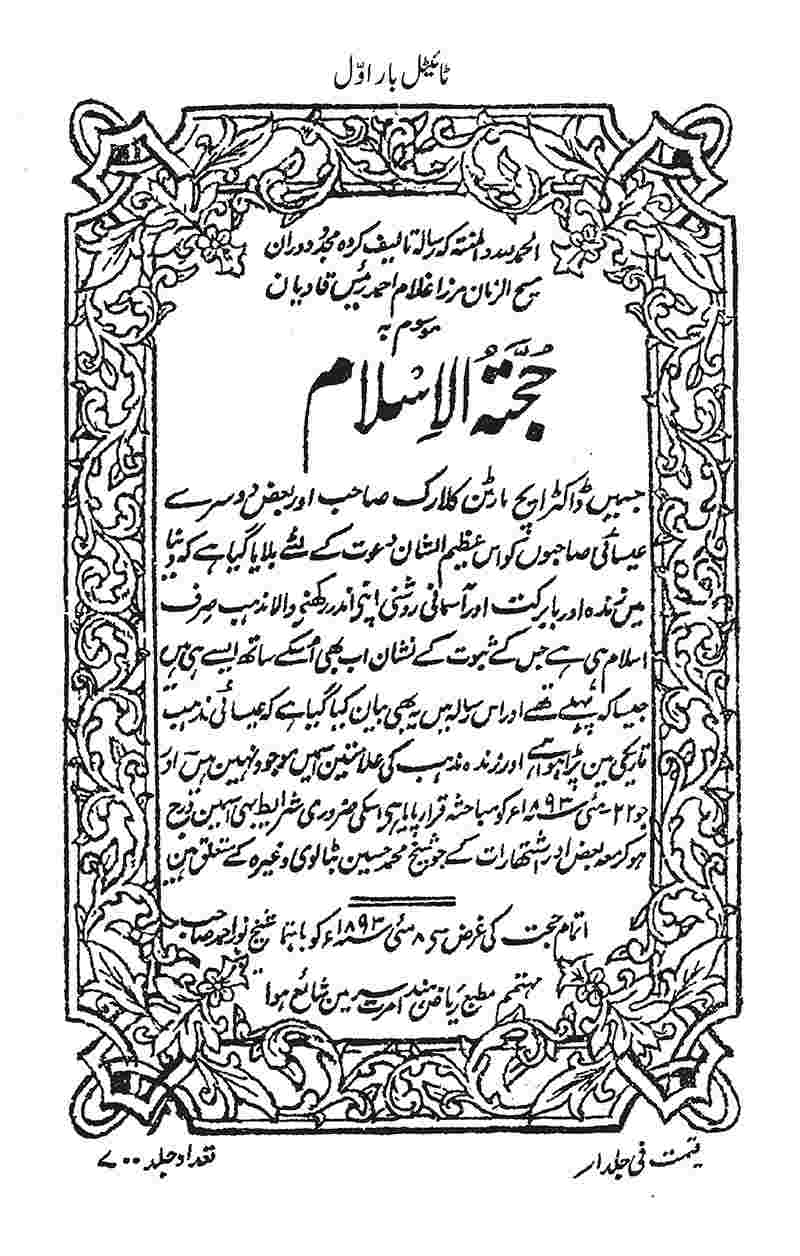 ٹائیٹل بار اوّل
الحمدللہ والمنتہ کہ رسالہ تالیف کردہ مجدد دوران
مسیح الزمان مرزا غلام احمد رئیس قادیان
موسوم بہ
حُجَّتہُ الاِسْلام
جسمیں ڈاکٹر ایچ مارٹن کلارک صاحب اور بعض دوسرے
عیسائی صاحبوں کو اس عظیم الشان دعوت کے لئے بلایا گیا ہے کہ دنیا
میں زندہ اور بابرکت اور آسمانی روشنی اپنے اندر رکھنے والا مذہب صرف
اسلام ہی ہے جس کے ثبوت کے نشان اب بھی اسکے ساتھ ایسے ہی ہیں
جیسا کہ پہلے تھے اور اس رسالہ میں یہ بھی بیان کیا گیا ہے کہ عیسائی مذہب
تاریکی مین پڑا ہوا ہے اور زندہ مذہب کی علامتین اسمیں موجود نہین ہیں اور
جو ۲۲ ۔ مئی سنہ ۱۸۹۳ء کو مباحثہ قرار پایا ہی اسکی ضروری شرایط بہی اسمین درج
ہو کر معہ بعض اور اشتہارات کے جو شیخ محمد حسین بٹالوی وغیرہ کے متعلق ہین
اتمام حجت کی غرض سی ۸ مئی سنہ ۱۸۹۳ء کو باہتمام شیخ نور احمد صاحب
مہتمم مطبع ریاض ہند امرت سر مین شائع ہوا
قیمت فی جلد ار
تعداد جلد ۷۰۰